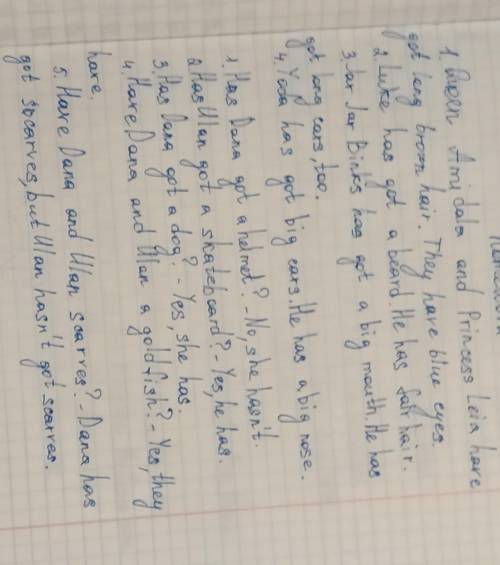 1. Queen Amidala and Princess Leia have
got long brown hair. They have blue eyes.
2. Luke has got a beard. He has fair hair.
3. Jar Jar Binks has got a big mouth. He has
got long ears, too.
4. Yoda has got big ears. He has a big nose.
1. Has Dana got a helmet? - No, she hasn't.
2. Has Ulan got a skateboard? - Yes, he has.
3. Has Dana got a dog? - Yes, she has.
4. Have Dana and Ulan a goldfish? - Yes, they
have.
5. Have Dana and Ulan scarves? - Dana has
got scarves, but Ulan hasn't got scarves.